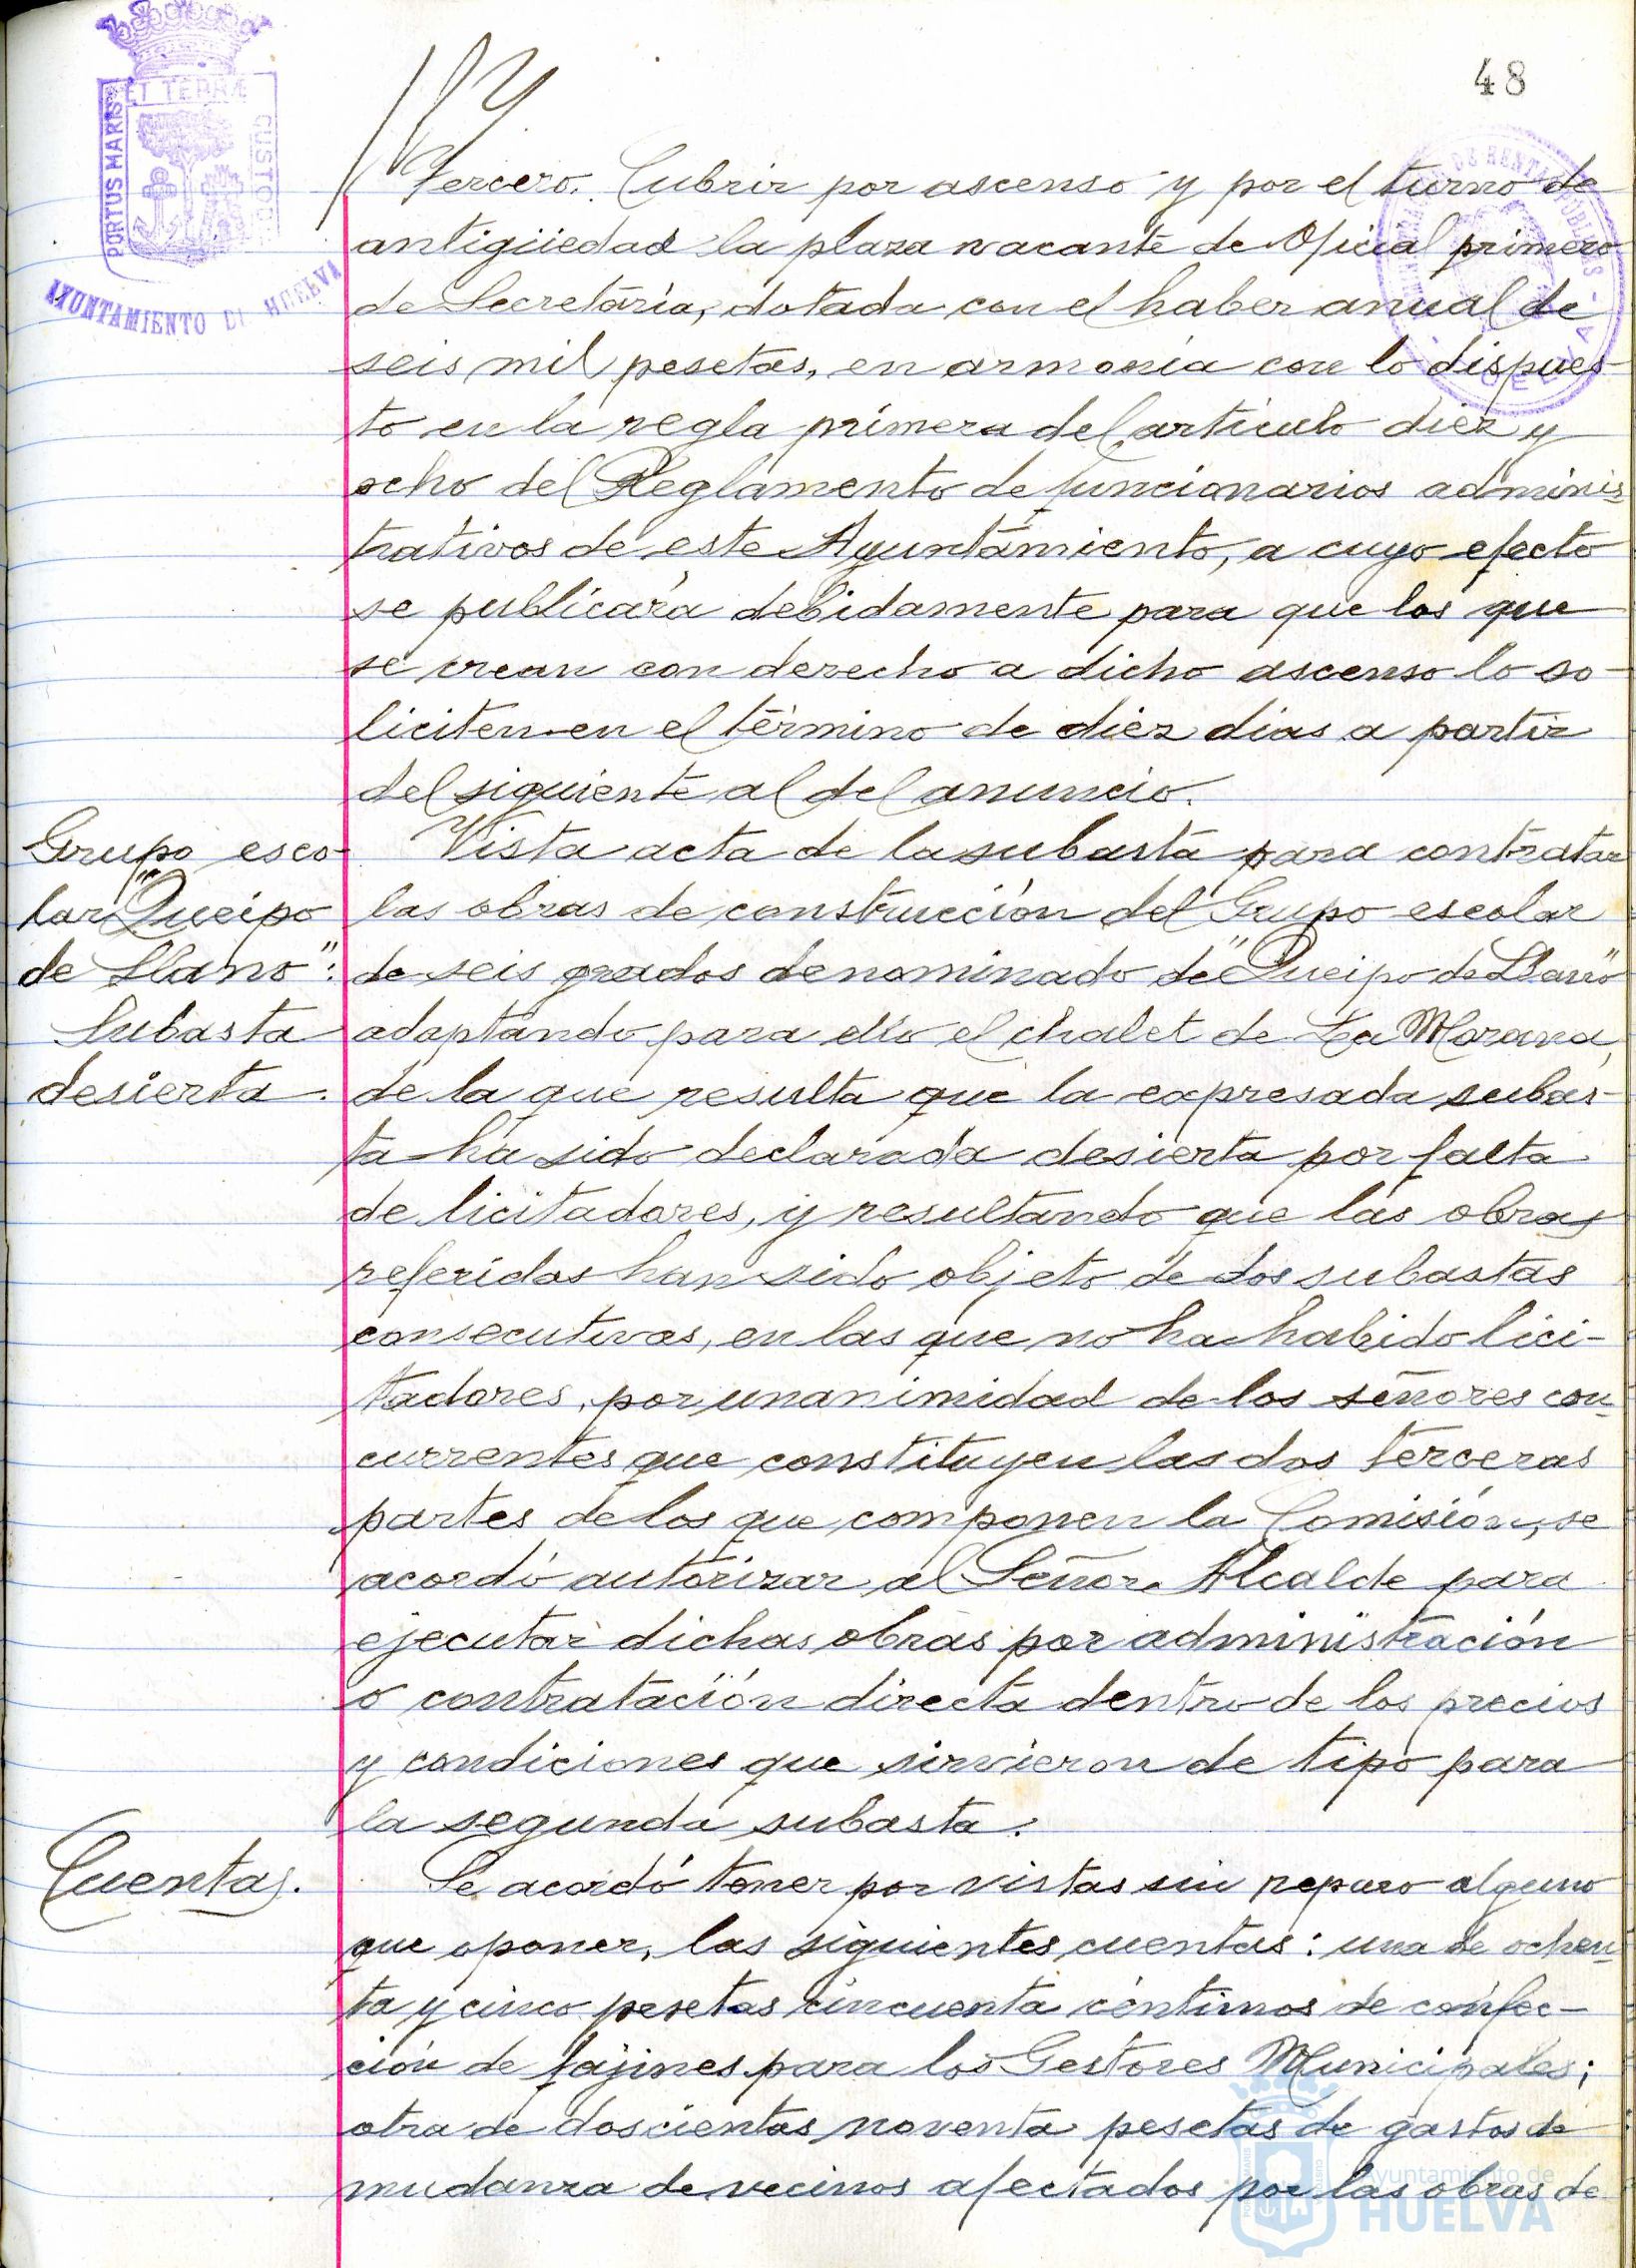 48
PORTUS MARIS
ET TERRÆ
CUSTOD
AYUNTAMIENTO DE HUELVA
Tercero. Cubrir por ascenso y por el turno de
antigüedad la plaza vacante de Oficial primero
de Secretaría, dotada con el haber anual de
seis mil pesetas, en armonía con lo dispues-
to en la regla primera del artículo diez y
ocho del Reglamento de funcionarios adminis-
trativos de este Ayuntamiento, a cuyo efecto
se publicará debidamente para que los que
se crean con derecho a dicho ascenso lo so-
liciten en el término de diez dias a partir
del siguiente al del anuncio.
Grupo esco-
lar "Queipo
de Llano":
Subasta
desierta.
Vista acta de la subasta para contratar
las obras de construcción del Grupo escolar
de seis grados denominado de "Queipo de Llano"
adaptando para ello el chalet de La Morana,
de la que resulta que la expresada subas-
ta ha sido declarada desierta por falta
de licitadores, y resultando que las obras
referidas han sido objeto de dos subastas
consecutivas, en las que no ha habido lici-
tadores, por unanimidad de los señores con-
currentes que constituyen las dos terceras
partes de los que componen la Comisión, se
acordó autorizar al Señor Alcalde para
ejecutar dichas obras por administración
o contratación directa dentro de los precios
y condiciones que sirvieron de tipo para
la segunda subasta.
Cuentas.
Se acordó tener por vistas sin reparo alguno
que oponer, las siguientes cuentas: una de ochen-
ta y cinco pesetas cincuenta céntimos de confec-
ción de fajines para los Gestores Municipales;
otra de doscientas noventa pesetas de gastos de
mudanza de vecinos afectados por las obras de
Ayuntamiento de
HUELVA